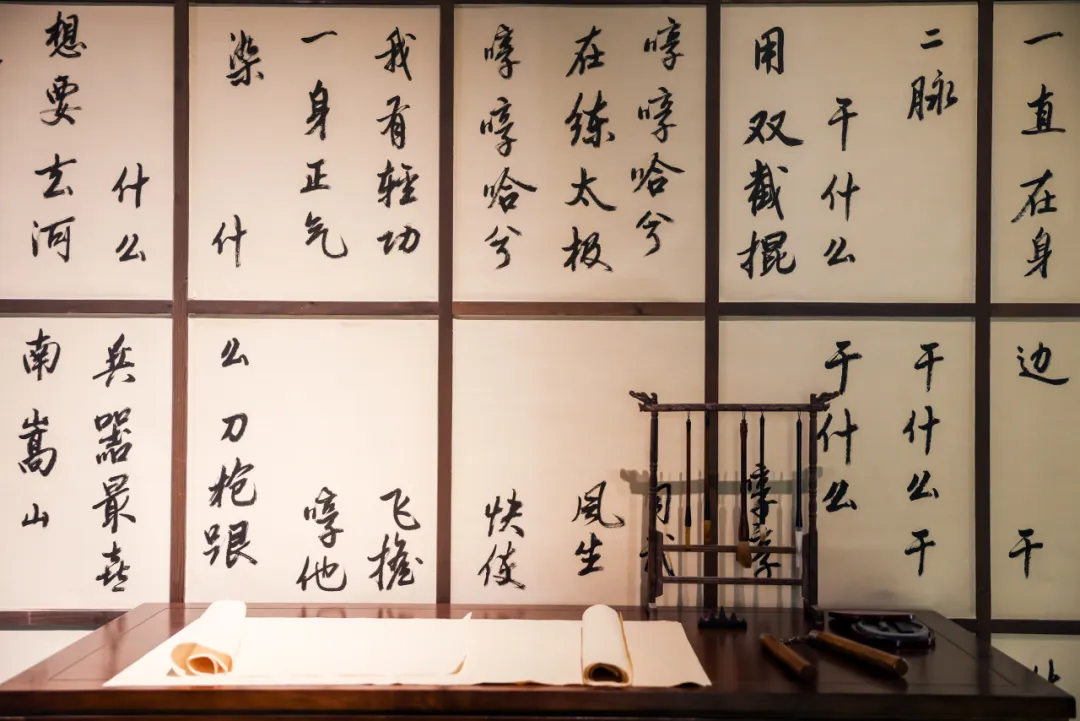 一直在身边 干
二脉 干什么干
干什么 干什么
用双截棍 哼哼
哼哼哈兮
在练太极 风生
哼哼哈兮 快使
我有轻功 飞檐
一身正气 哼他
染 什么刀枪跟
什么 兵器最喜
想要去河南嵩山